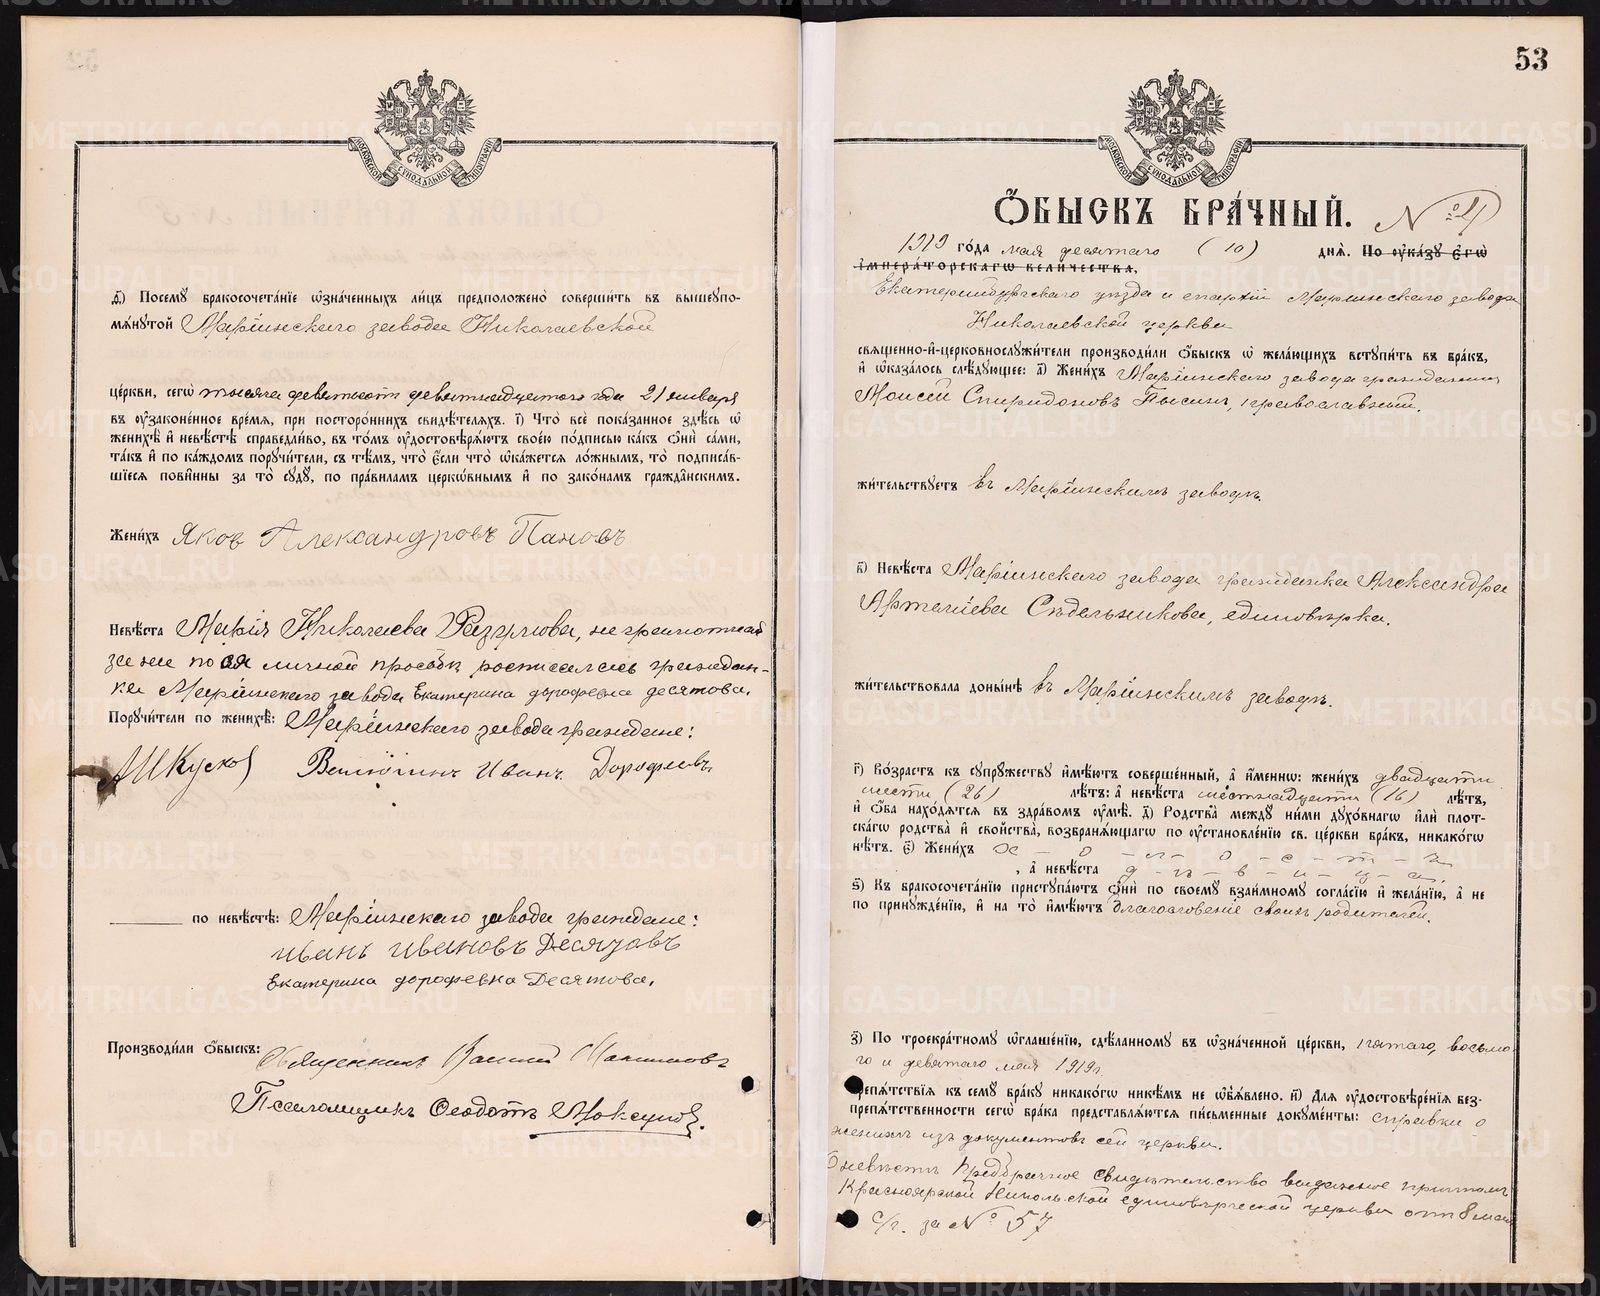 МОСКОВСКОЙ СѴНОДАЛЬНОЙ ТИПОГРАФІИ
д҃) Посемꙋ бракосочета́нїе ѡ҆зна́ченныхъ ли́цъ предположено̀ соверши́ть въ вышеупо-
мѧ́нꙋтой Маріинскаго завода Николаевской
це́ркви, сегѡ̀ тысяча девятьсотъ девятнадцатого года 21 января
въ ᲂу҆зако́ненное вре́мѧ, при посторо́ннихъ свидѣ́телѧхъ. і҃) Что̀ всѐ пока́занное здѣ́сь ѡ҆
женихѣ̀ и҆ невѣ́стѣ справедли́во, въ то́мъ ᲂу҆достовѣрѧ́ютъ свое́ю по́дписью ка́къ ѻ҆нѝ са́ми,
та́къ и҆ по ка́ждомъ порꙋчи́тели, съ тѣ́мъ, что̀ є҆́сли что̀ ѡ҆ка́жетсѧ ло́жнымъ, то̀ подписа́в-
шїесѧ пови́нны за то̀ сꙋдꙋ̀, по пра́виламъ церкѡ́внымъ и҆ по зако́намъ гражда́нскимъ.
Жени́хъ Яков Александровъ Пановъ
Невѣ́ста Марія Николаева, не грамотная
за нее по ея личной просьбѣ росписалась граждан-
ка Маріинскаго завода Екатерина дорофевна десятова.
Порꙋчи́тели по женихѣ̀: Маріинскаго завода граждане:
Кусков Иванъ
по невѣ́стѣ: Маріинскаго завода граждане:
иванъ ивановъ Десятовъ
Екатерина дорофевна Десятова.
Производи́ли ѻ҆́быскъ: Священникъ
Псаломщикъ Ѳеодотъ
53
МОСКОВСКОЙ СѴНОДАЛЬНОЙ ТИПОГРАФІИ
Ѻ҆́БЫСКЪ БРА́ЧНЫЙ. №
1919 го́да мая десятаго (10) днѧ̀. По ᲂу҆ка́зꙋ Є҆гѡ̀
И҆мпера́торскагѡ вели́чества,
Екатеринбургскаго уѣзда и епархіи Маріинскаго завода
Николаевской церкви
свѧще́нно-и҆-церковнослꙋжи́тели производи́ли ѻ҆́быскъ ѡ҆ жела́ющихъ встꙋпи́ть въ бра́къ,
и҆ ѡ҆каза́лось слѣ́дꙋющее: а҃) Жени́хъ Маріинскаго завода гражданинъ
Моисей Спиридоновъ, православный.
жи́тельствꙋетъ въ Маріинскимъ заводѣ.
в҃) Невѣ́ста Маріинскаго завода гражданка Александра
Артеміева Сѣдельникова, единовѣрка.
жи́тельствовала доны́нѣ въ Маріинскимъ заводѣ.
г҃) Во́зрастъ къ сꙋпрꙋ́жествꙋ и҆мѣ́ютъ соверше́нный, а҆ и҆́меннѡ: жени́хъ двадцати
шести (26) лѣ́тъ: а҆ невѣ́ста шестнадцати (16) лѣ́тъ,
и҆ ѻ҆́ба нахо́дѧтсѧ въ здра́вомъ ᲂу҆мѣ̀. д҃) Родства̀ междꙋ̀ ни́ми дꙋхо́внагѡ и҆лѝ плот-
ска́гѡ родства̀ и҆ свойства̀, возбранѧ́ющагѡ по ᲂу҆становле́нїю св. це́ркви бра́къ, никако́гѡ
нѣ́тъ. є҃) Жени́хъ х – о – л – о – с – т – ъ
, а҆ невѣ́ста д – ѣ – в – и – ц – а.
ѕ҃) Къ бракосочета́нїю пристꙋпа́ютъ ѻ҆нѝ по своемꙋ̀ взаи́мномꙋ согла́сїю и҆ жела́нїю, а҆ не
по принꙋжде́нїю, и҆ на то̀ и҆мѣ́ютъ благословеніе своихъ родителей.
з҃) По троекра́тномꙋ ѡ҆глаше́нїю, сдѣ́ланномꙋ въ ѡ҆зна́ченной це́ркви, пятаго, восьмо-
го и девятаго мая 1919 г.
репѧ́тствїѧ къ семꙋ̀ бра́кꙋ никако́гѡ никѣ́мъ не ѡ҆б̾ѧ́влено. и҃) Для ᲂу҆достовѣре́нїѧ без-
препѧ́тственности сегѡ̀ бра́ка представлѧ́ютсѧ пи́сьменные докꙋме́нты: справки о
женихѣ изъ документовъ сей церкви.
О невѣстѣ Предбрачное свидѣтельство выданное причтомъ
Красноярской Никольской единовѣрческой церкви отъ 8 мая
с/г. за № 57
METRIKI.GASO-URAL.RU